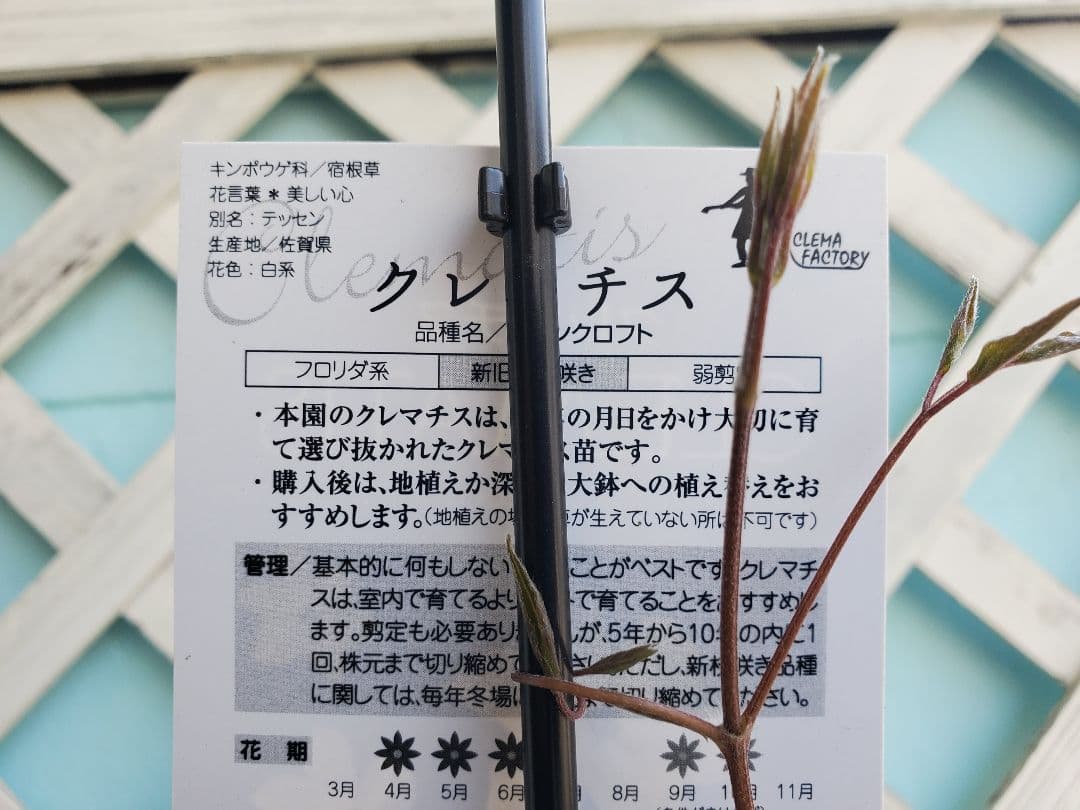 キンポウゲ科／宿根草
花言葉＊美しい心
別名：テッセン
生産地／佐賀県
花色：白系
Clematis
CLEMA
FACTORY
クレ チス
品種名／ ルクロフト
フロリダ系 新旧 咲き 弱剪
・本園のクレマチスは、 の月日をかけ大切に育
て選び抜かれたクレマ ス苗です。
・購入後は、地植えか深 大鉢への植え替えをお
すすめします。（地植えの場 が生えていない所は不可です）
管理／基本的に何もしない ことがベストです。クレマチ
スは、室内で育てるより で育てることをおすすめし
ます。剪定も必要ありま んが、5年から10年の内に1
回、株元まで切り縮めて さい。ただし、新枝咲き品種
に関しては、毎年冬場に 切り縮めてください。
花期
3月 4月 5月 6月 8月 9月 10月 11月